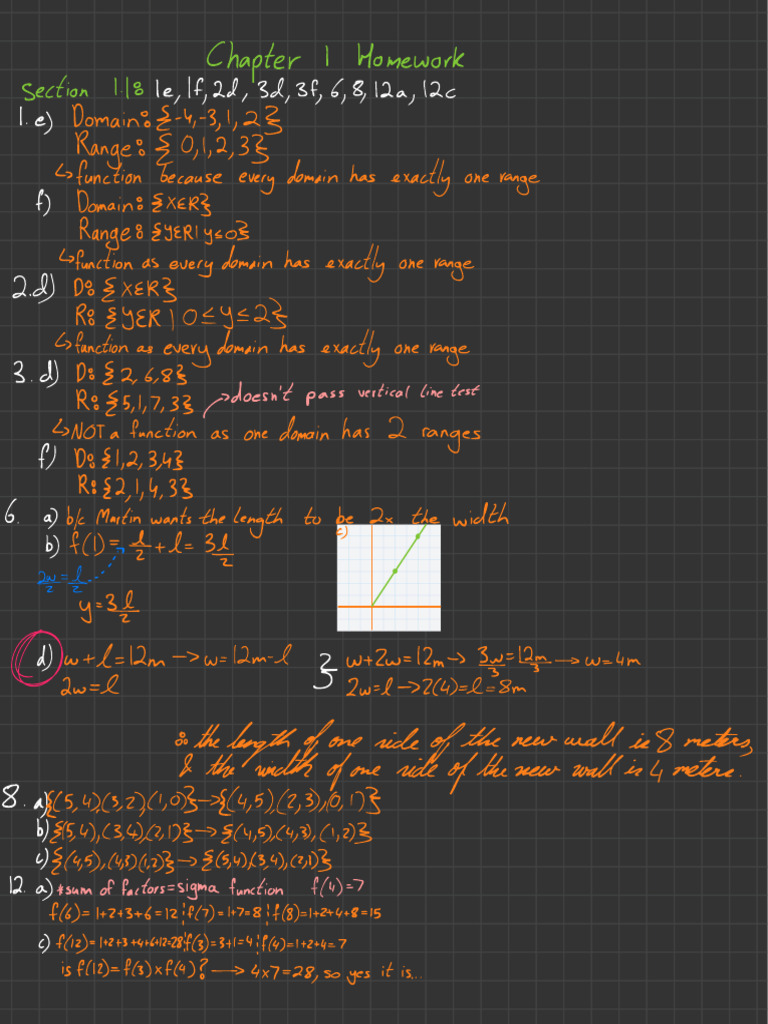 Chapter 1 Homework
Section 1.1: 1e, 1f, 2d, 3d, 3f, 6, 8, 12a, 12c
1. e) Domain: {-4, -3, 1, 2}
Range: { 0, 1, 2, 3}
↳ function because every domain has exactly one range
f) Domain: {XER}
Range: {YER | y≤0}
↳ function as every domain has exactly one range
2. d) D: {XER}
R: {YER | 0≤y≤2}
↳ function as every domain has exactly one range
3. d) D: {2, 6, 8}
R: {5, 1, 7, 3} → doesn't pass vertical line test
↳ NOT a function as one domain has 2 ranges
f) D: {1, 2, 3, 4}
R: {2, 1, 4, 3}
6. a) b/c Martin wants the length to be 2x the width
b) f(l) = l/2 + l = 3l/2
c)
2w/2 = l/2
y = 3l/2
d) w + l = 12m → w = 12m - l } w + 2w = 12m → 3w/3 = 12m/3 → w = 4m
2w = l 2w = l → 2(4) = l = 8m
∴ the length of one side of the new wall is 8 meters,
& the width of one side of the new wall is 4 meters.
8. a) {(5,4),(3,2)(1,0)} → {(4,5)(2,3),(0,1)}
b) {(5,4),(3,4)(2,1)} → {(4,5),(4,3),(1,2)}
c) {(4,5),(4,3)(1,2)} → {(5,4),(3,4),(2,1)}
12. a) *sum of factors = sigma function f(4) = 7
f(6) = 1+2+3+6 = 12 ¦ f(7) = 1+7 = 8 ¦ f(8) = 1+2+4+8 = 15
c) f(12) = 1+2+3+4+6+12 = 28 ¦ f(3) = 3+1 = 4 ¦ f(4) = 1+2+4 = 7
is f(12) = f(3) x f(4)? → 4x7 = 28, so yes it is...